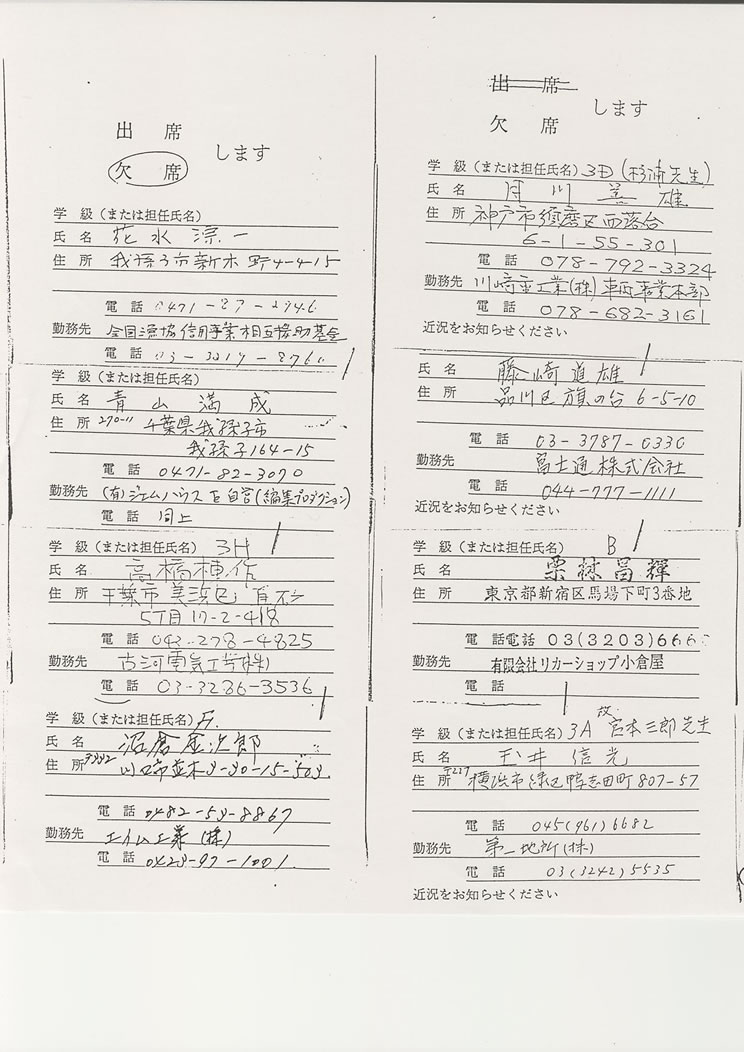 出 席
欠 席
します
学 級（または担任氏名）
氏 名 花 水 淙 一
住 所 我孫子市新木野4-4-15
電 話
勤務先 全国漁協信用事業相互援助基金
電 話
学 級（または担任氏名）
氏 名 青 山 満 成
住 所 270-11 千葉県我孫子市
我孫子164-15
電 話 0471-82-3070
勤務先 (有)ジェムハウスを自営(編集プロダクション)
電 話 同上
学 級（または担任氏名） 3H
氏 名 高橋棟作
住 所 千葉市美浜区
5丁目17-2-418
電 話 043-278-4825
勤務先 古河電気工業(株)
電 話 03-3286-3536
学 級（または担任氏名） F.
氏 名 沼倉金次郎
住 所 〒332 川口市並木3-30-15-503
電 話 0482-53-8867
勤務先 エイム工業(株)
電 話 0423-97-1001
出 席
欠 席
します
学 級（または担任氏名） 3D (杉浦先生)
氏 名 月 川 善 雄
住 所 神戸市須磨区西落合
6-1-55-301
電 話 078-792-3324
勤務先 川崎重工業(株) 車両事業本部
電 話 078-682-3161
近況をお知らせください
氏 名 藤崎道雄
住 所 品川区旗の台 6-5-10
電 話 03-3787-0330
勤務先 富士通株式会社
電 話 044-777-1111
近況をお知らせください
学 級（または担任氏名） B
氏 名 栗林昌輝
住 所 東京都新宿区馬場下町3番地
電 話 電話 03(3203)666
勤務先 有限会社リカーショップ小倉屋
電 話
学 級（または担任氏名） 3A 故 宮本三郎先生
氏 名 玉井信光
住 所 〒227 横浜市緑区鴨志田町 807-57
電 話 045(961)6682
勤務先 第一地所(株)
電 話 03(3242)5535
近況をお知らせください